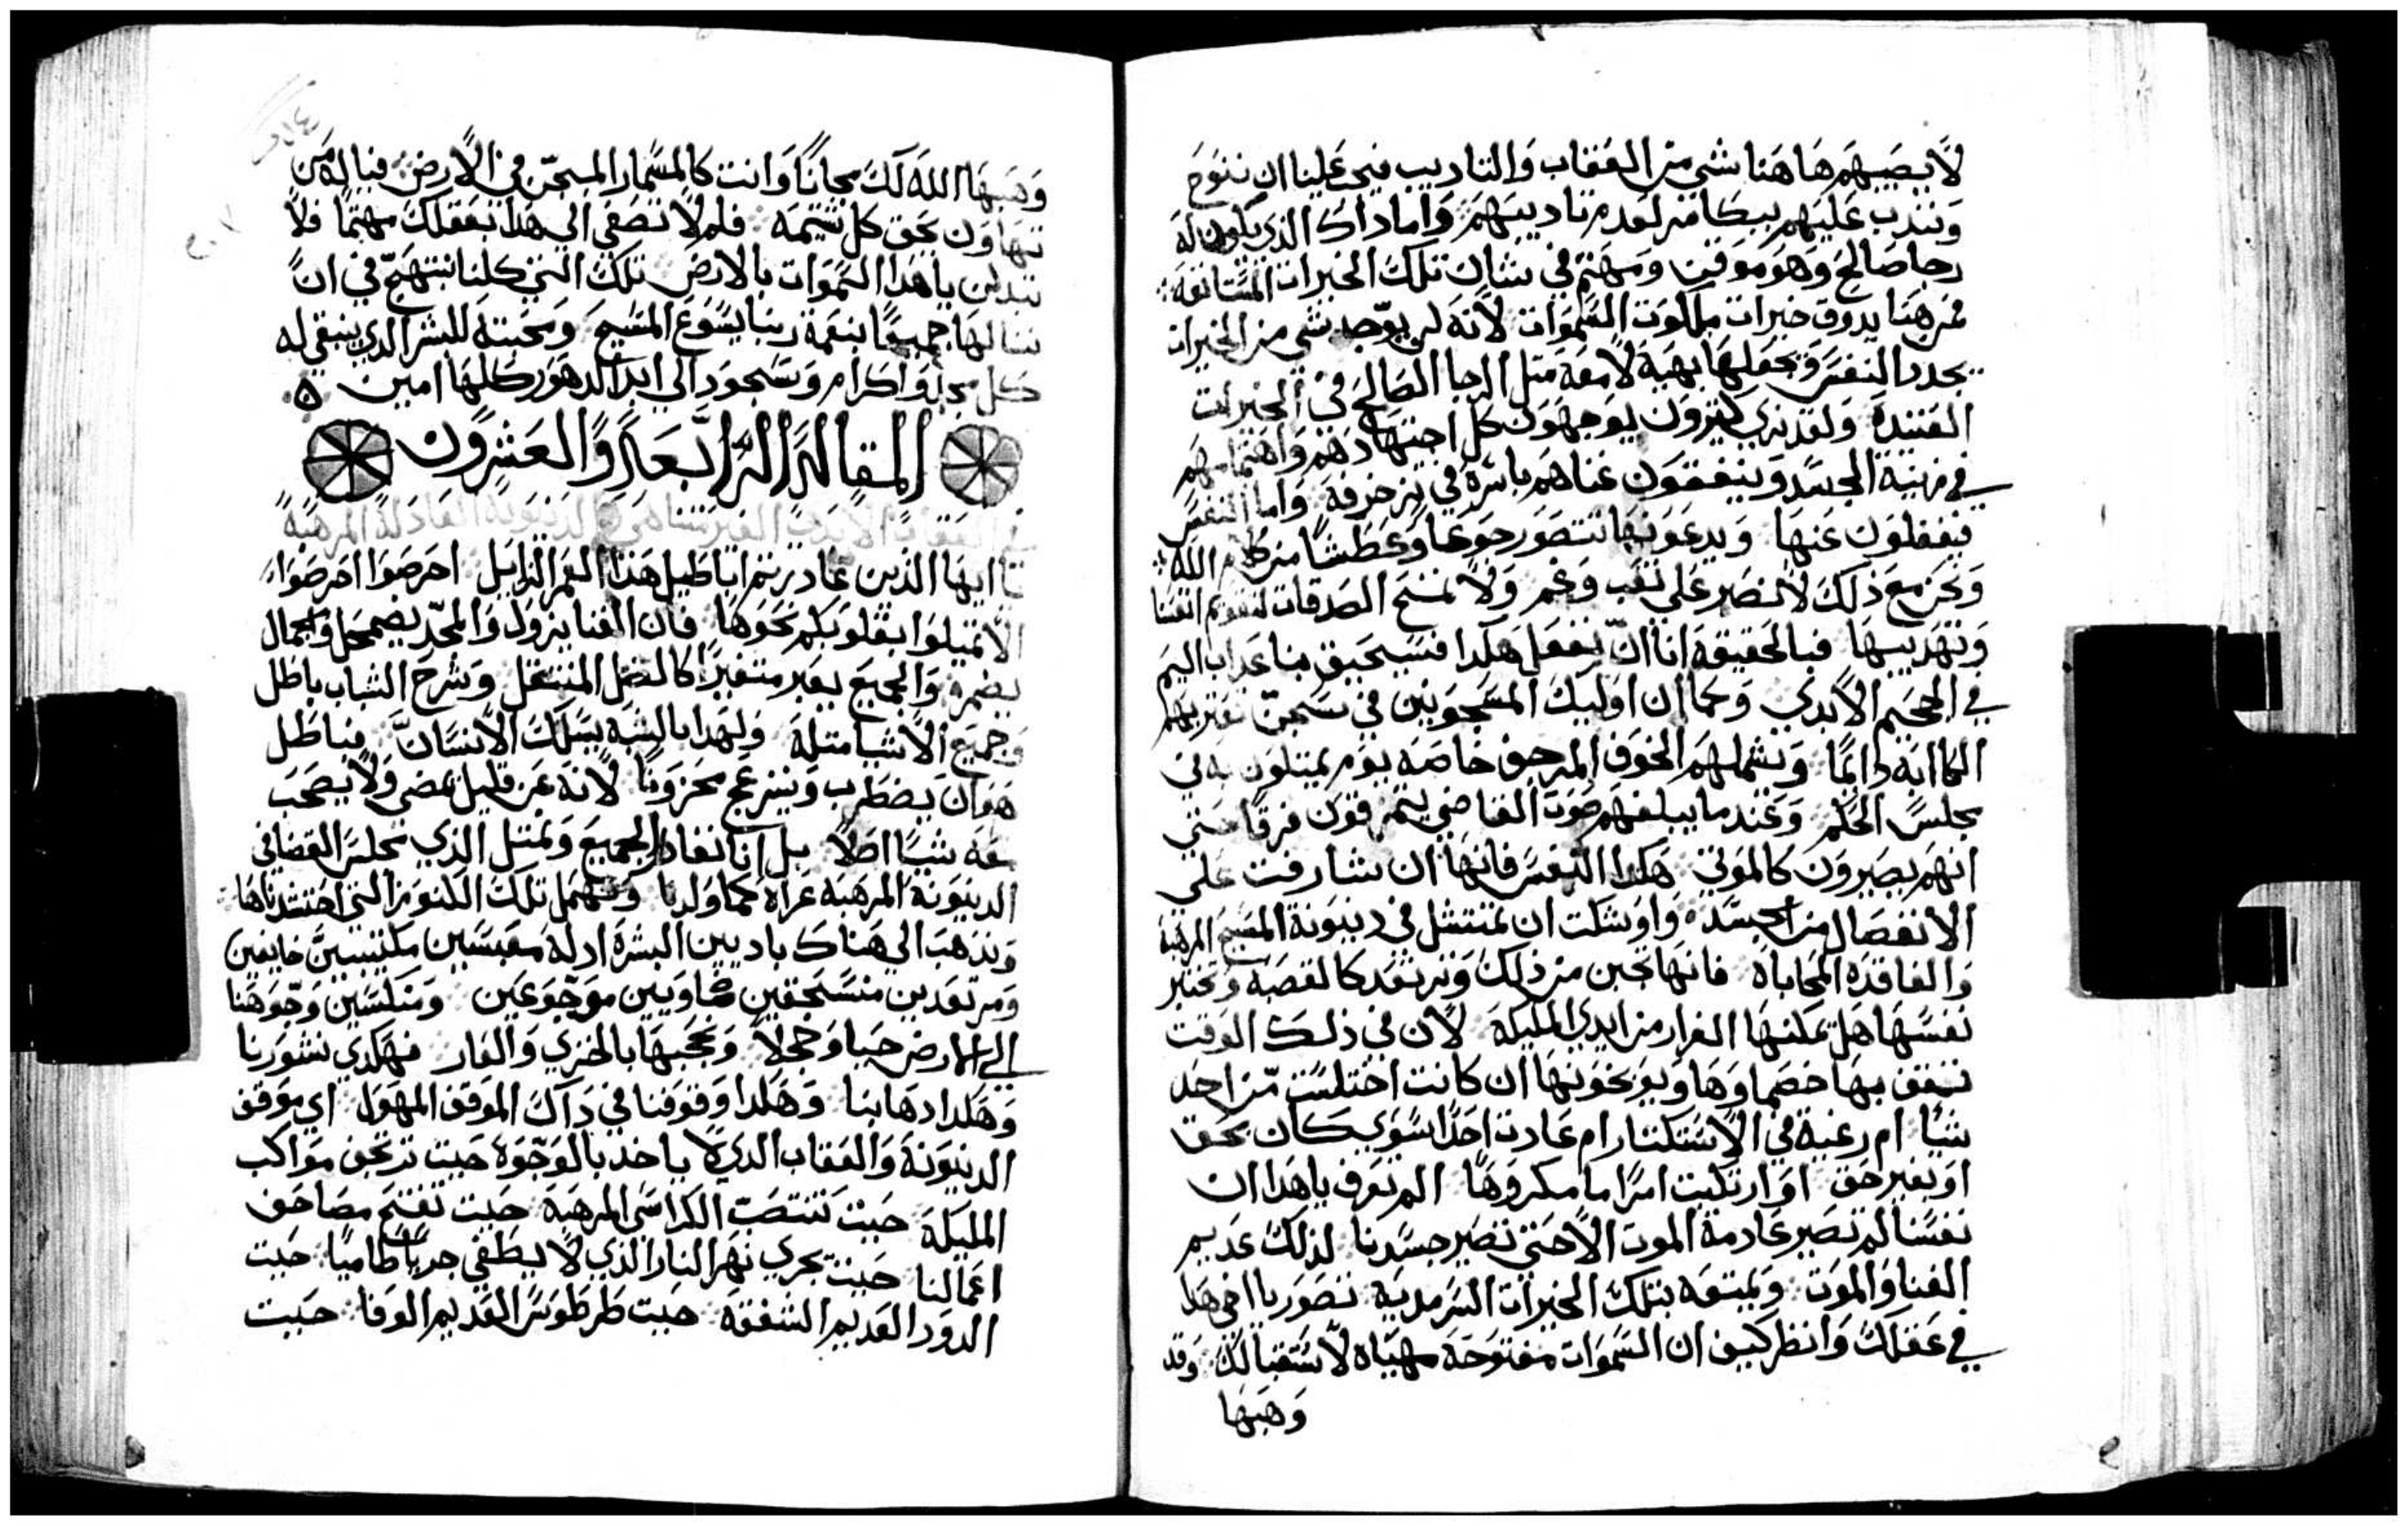 لا يصيبهم هاهنا شي من العقاب والتاديب فيجب علينا ان ننوح
ونندب عليهم ببكا من لعدم تاديبهم واما داك الذي يكون له
رجا صالح وهو موقن ومهتم في شان تلك الخيرات المستانفه
فمن هنا يدوق خيرات ملكوت السموات لانه لن يوجد شي من الخيرات
يجدد النفس ويجعلها بهية لامعة متل الرجا الصالح في الخيرات
العتيدة ولقد نري كتيرون يوجهون كل اجتهادهم واهتمامهم
في زينة الجسد وينفقون غناهم باسره في زخرفه واما النفس
فيغفلون عنها ويدعونها تتضور جوعا وعطشا من كلام الله
ونحن مع ذلك لا نصبر علي تعب وغم ولا نمنح الصدقات لتقويم انفسنا
وتهديبها فبالحقيقة اننا ان نفعل هكدا فسيحيق بنا عداب اليم
في الجحيم الابدي وكما ان اوليك المسجونين في سجن تعتريهم
الكاابه دايما ويشملهم الخوف المرجف خاصه يوم يمتلون به في
مجلس الحكم وعندما يبلغهم صوت القاضي يتمزقون فرقا حتي
انهم يصيرون كالموتي هكدا النفس فانها ان شارفت علي
الانفصال من الجسد واوشكت ان تمتتل في دينونة المسيح المرهبة
والفاقدة المحاباه فانها تجبن من ذلك وترتعد كالقصبه وتختبر
نفسها هل يمكنها الفرار من ايدي المليكة لان في ذلك الوقت
تقف بها خصماوها ويوبخونها ان كانت اختلست من احد
شيا ام رغبة في الاستكتار ام عادت احدا سوي كان بحق
او بغير حق او ارتكبت امرا ما مكروها الم تعرف ياهدا ان
نفسنا لم تصير عادمة الموت الا حتي تصير جسدنا لذلك عديم
الفنا والموت ويمتعه بتلك الخيرات السرمدية تصور يا اخي هدا
في عقلك وانظر كيف ان السموات مفتوحة مهياه لاستقبالك وقد
وهبها
وهبها الله لك مجانا وانت كالمسمار المسجن في الارض فياله من
تهاون بحق كل شتيمه فلم لا تصغي الي هدا بعقلك مهتما فلا
تبدلن ياهدا السموات بالارض تلك التي كلنا نبتهج في ان
ننالها جميعا بنعمة ربنا يسوع المسيح ومحبته للبشر الدي ينبغي له
كل مجد واكرام وسجود الي ابد الدهور كلها امين
المقالة الرابعة والعشرون
في العقاب الابدي الغير متناهي والدينونة العادلة المرهبة
يا ايها الذين غادرتم اباطيل هذا العمر الزايل احرصوا احرصوا
الا تميلوا بقلوبكم نحوها فان الغنا يزول والمجد يضمحل والجمال
يضمر والجميع يعبر متغيرا كالظل المنتقل وشرخ الشباب باطل
وجميع الاشيا متله ولهدا بالشبه يسلك الانسان فباطل
هو ان يضطرب وينزعج محزونا لانه عن قليل يمضي ولا يصحب
معه شيا اصلا بل اننا نغادر الجميع ونمتتل الذي مجلس القضا في
الدينونة المرهبه عراه كما ولدنا ونهمل تلك الكنوز التي احتشدناها
وندهب الي هناك باديين البشرة ادلة معبسين مكتيبين خايفين
ومرتعدين منسحقين متاويين موجوعين ومنكسين وجوهنا
الي الارض حيا وخجلا ونحجبها بالخزي والعار فهكدي نشورنا
وهكدا دهابنا وهكدا وقوفنا في داك الموقف المهول اي موقف
الدينونة والعقاب الدي لا ياخد بالوجوه حيت ترتجف مواكب
المليكة حيت تنتصب الكراسي المرهبة حيت تفتح مصاحف
اعمالنا حيت يجري نهر النار الذي لا يطفي جريانا طاميا حيت
الدود العديم الشفقة حيت طرطوس العديم الوفا حيت